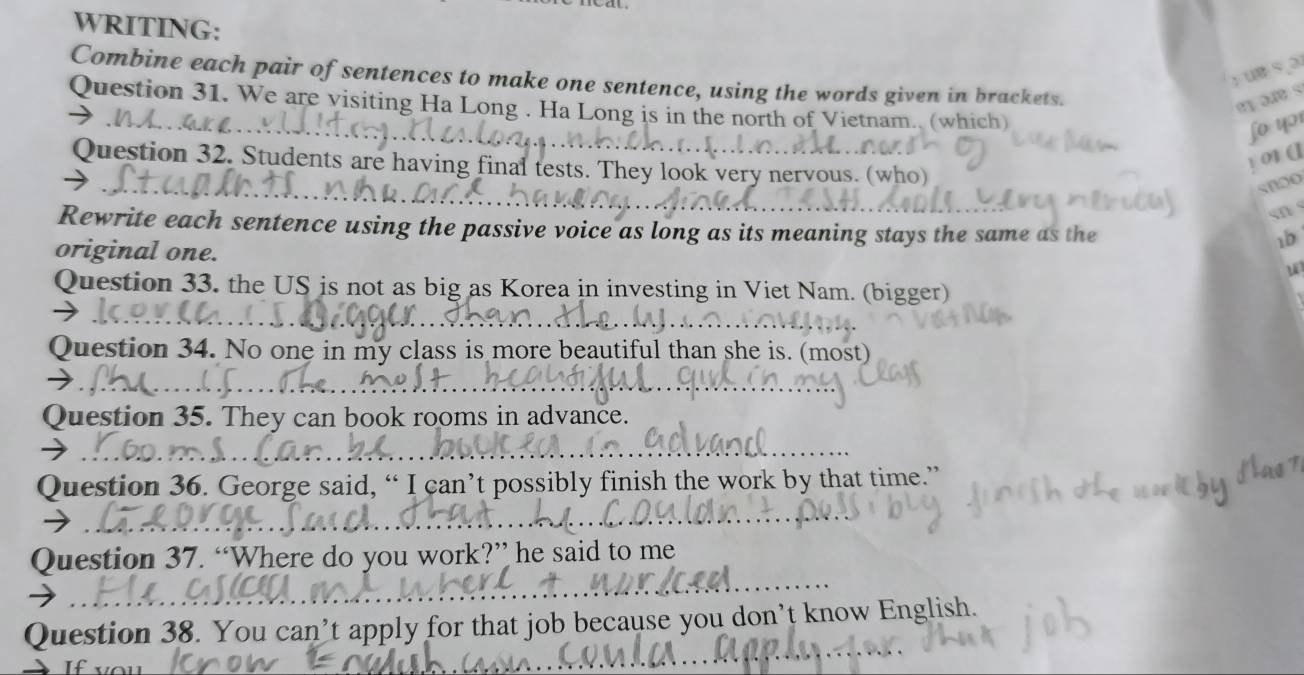 WRITING:
Combine each pair of sentences to make one sentence, using the words given in brackets.
Question 31. We are visiting Ha Long . Ha Long is in the north of Vietnam. (which)
→ We are visiting Ha Long, which is in the north of Viet Nam
Question 32. Students are having final tests. They look very nervous. (who)
→ Students who are having final tests look very nervous
Rewrite each sentence using the passive voice as long as its meaning stays the same as the
original one.
Question 33. the US is not as big as Korea in investing in Viet Nam. (bigger)
→ Korea is Bigger than the US in in Viet Nam
Question 34. No one in my class is more beautiful than she is. (most)
→ She is the most beautiful girl in my class
Question 35. They can book rooms in advance.
→ rooms can be booked in advance
Question 36. George said, “ I can’t possibly finish the work by that time.”
→ George said that he couldn't possibly finish the work by that
Question 37. “Where do you work?” he said to me
→ He asked me where I worked
Question 38. You can’t apply for that job because you don’t know English.
→ If you know English could apply for that job